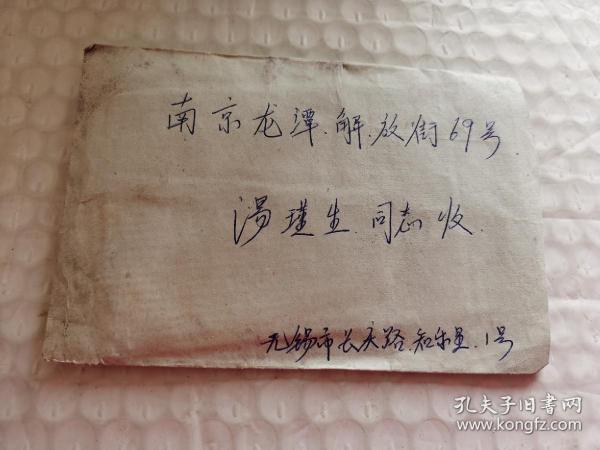 南京龙潭解放街69号
湯瑾生同志收
无锡市长天路知乐里1号
孔夫子旧书网
www.kongfz.com